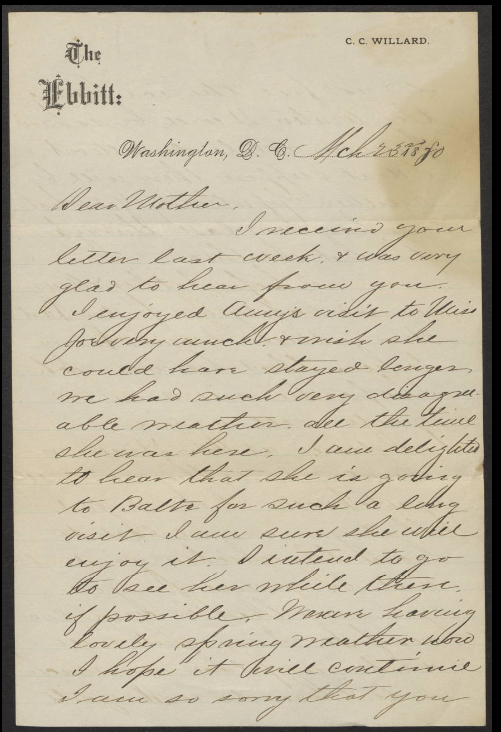 The
Ebbitt:
C. C. WILLARD.
Washington, D. C. Mch 23rd 1880
Dear Mother,
I received your
letter last week, & was very
glad to hear from you.
I enjoyed Amy's visit to Miss
Joe very much. & wish she
could have stayed longer,
we had such very disagre-
able weather all the time
she was here, I am delighted
to hear that she is going
to Balto for such a long
visit I am sure she will
enjoy it. I intend to go
to see her while there,
if possible. We are having
lovely spring weather now
I hope it will continue
I am so sorry that you